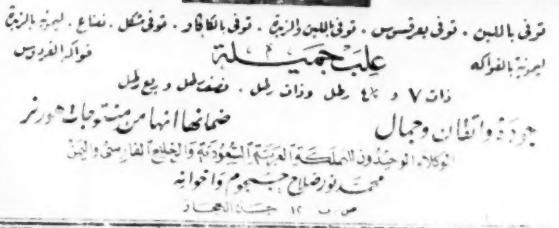 توفى باللبن . توفى بعرقسوس . توفى باللبن والزبدة . توفى بالكاكاو . توفى شكل . نعناع . ليمونية بالزبدة
ليمونية بالفواكه علب جميلة فواكه الفردوس
ذات ٧ و ٤½ رطل وذات رطل . نصف رطل وربع رطل
جودة واتقان وجمال ضمانها انها من منتوجات هورنر
الوكلاء الوحيدون للمملكة العربية السعودية والخليج الفارسي واليمن
محمد نور صلاح جمجوم واخوانه
ص . ب ١٢ جدة الحجاز